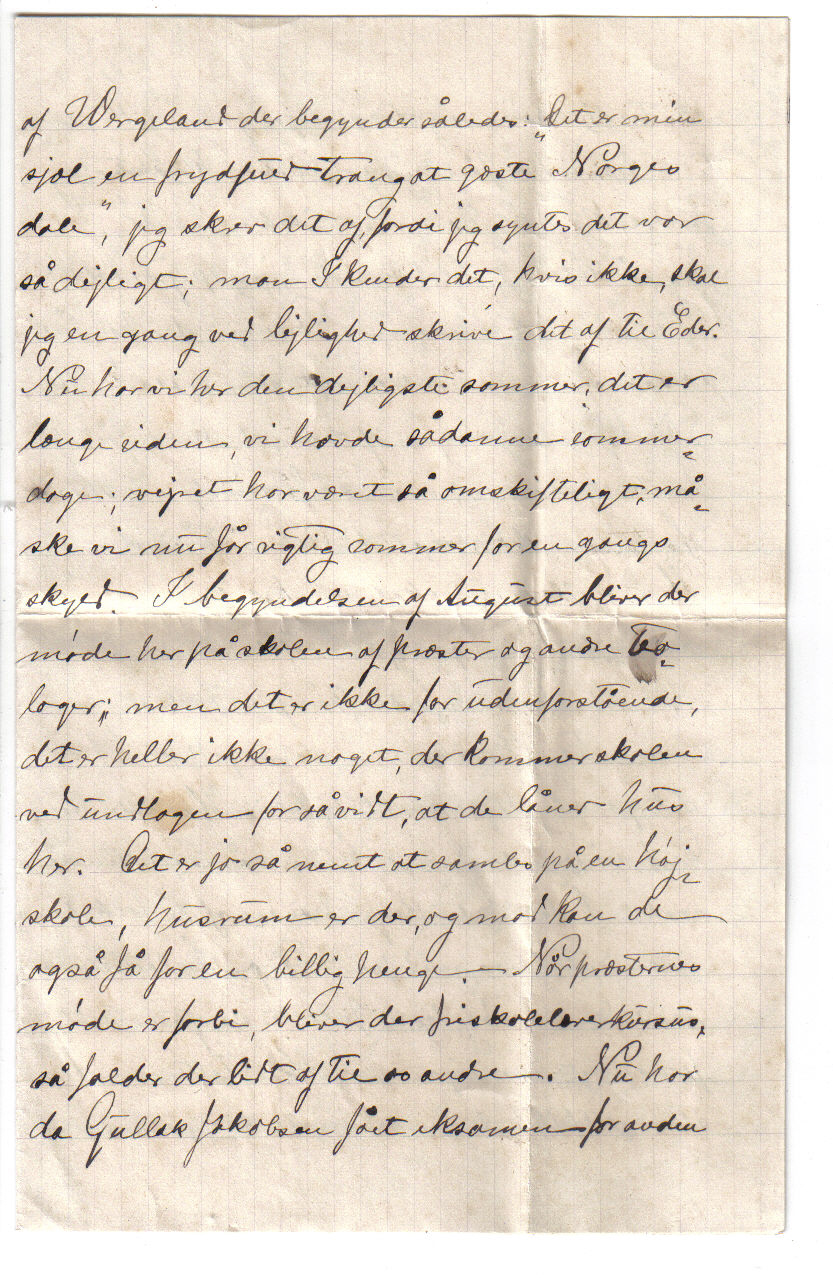 af Wergeland der begynder således: „Det er min
sjæl en frydfuld Trang at gæste Norges
dale”, jeg skrev det af, fordi jeg syntes det var
så dejligt; mon I kender det, hvis ikke, skal
jeg en gang ved lejlighed skrive det af til Eder.
Nu har vi her den dejligste sommer, det er
længe siden, vi havde sådanne sommer-
dage; vejret har været så omskifteligt, må-
ske vi nu får rigtig sommer for en gangs
skyld. I begyndelsen af August bliver der
møde her på skolen af præster og andre teo-
loger; men det er ikke for udenforstående,
det er heller ikke noget, der kommer skolen
ved undtagen for så vidt, at de låner hus
her. Det er jo så nemt at samles på en høj-
skole, husrum er der, og mad kan de
også få for en billig penge. – Når præsternes
møde er forbi, bliver der friskolelærerkursus,
så falder der lidt af til os andre. Nu har
da Gullak Jakobsen fået eksamen for anden